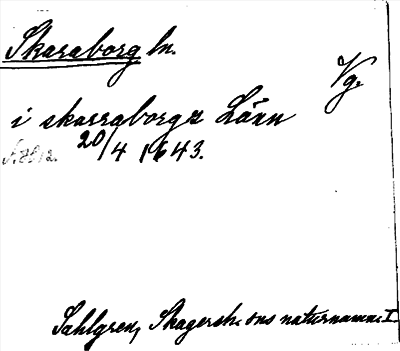 Skaraborg ln.
Vg.
i skarraborgz Länn
20/4 1643.
Sahlgren, Skagersh:ons naturnamn. I